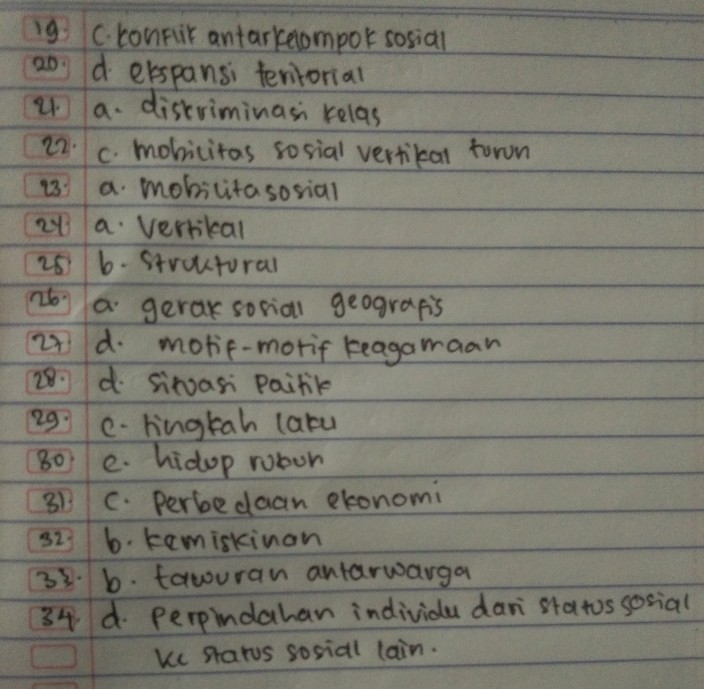 19. c. konflik antarkelompok sosial
20. d. ekspansi teritorial
21. a. diskriminasi kelas
22. c. mobilitas sosial vertikal turun
23. a. mobilita sosial
24. a. vertikal
25. b. Struktural
26. a. gerak sosial geografis
27. d. motif-motif keagamaan
28. d. situasi
29. c. tingkah laku
30. e. hidup rukun
31. c. Perbedaan ekonomi
32. b. kemiskinan
33. b. tawuran antarwarga
34. d. Perpindahan individu dari status sosial
ke status sosial lain.